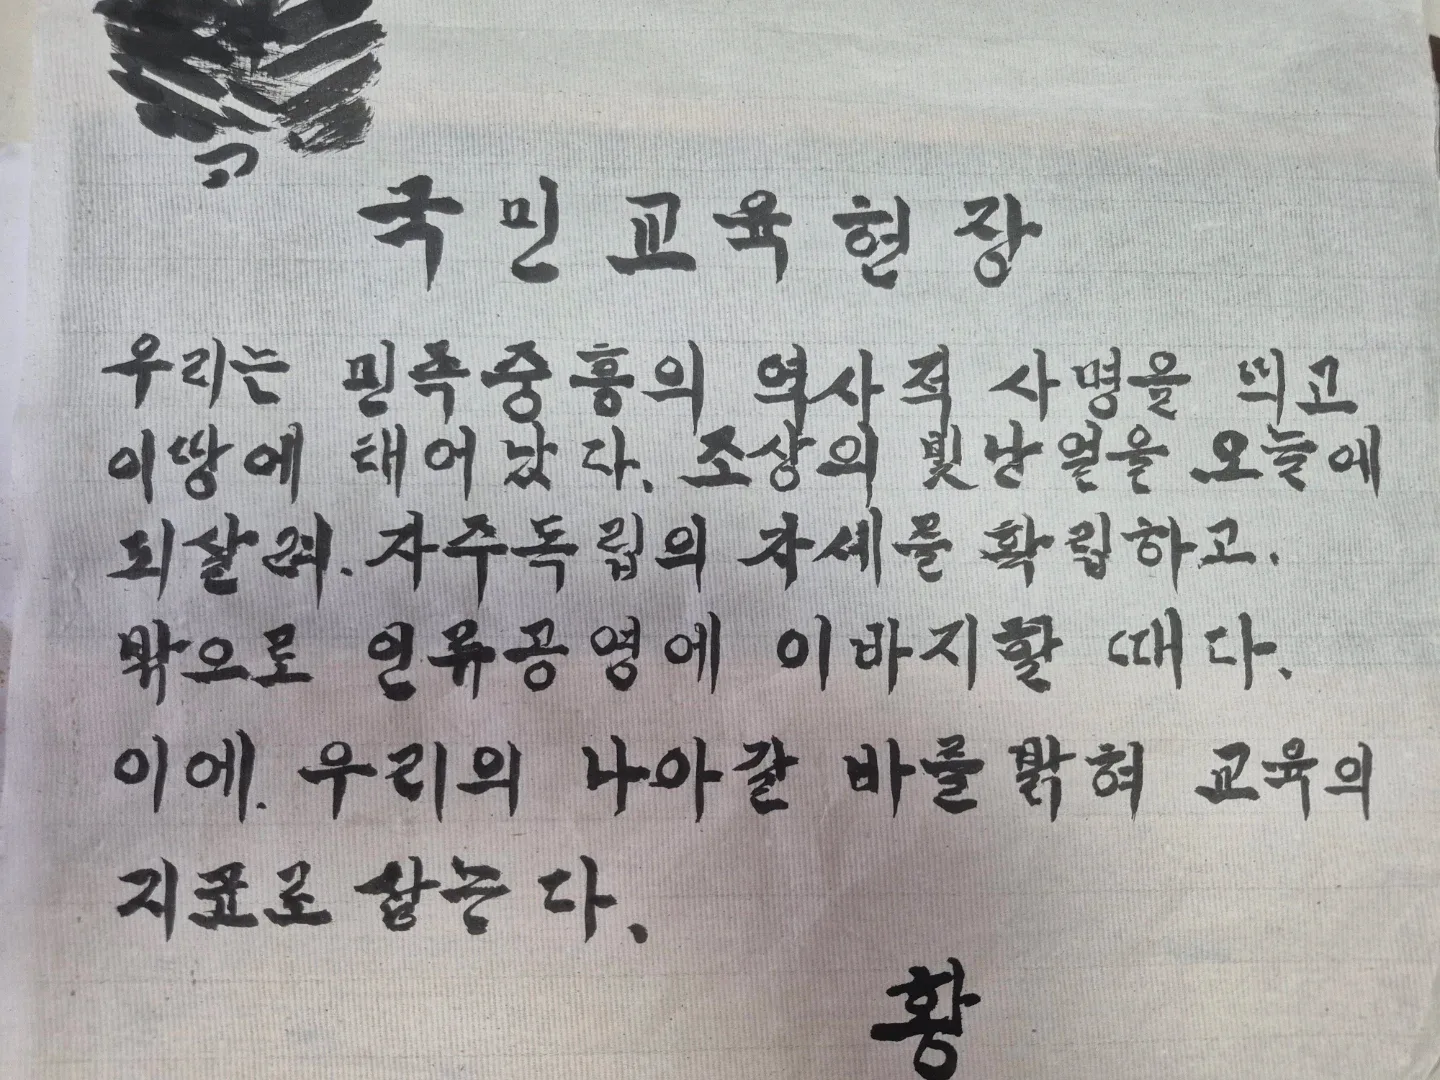 국민교육현장
우리는 민족중흥의 역사적 사명을 띄고
이땅에 태어났다. 조상의 빛난얼을 오늘에
되살려. 자주독립의 자세를 확립하고.
밖으로 인류공영에 이바지할 때다.
이에. 우리의 나아갈 바를 밝혀 교육의
지표로 삼는다.
황